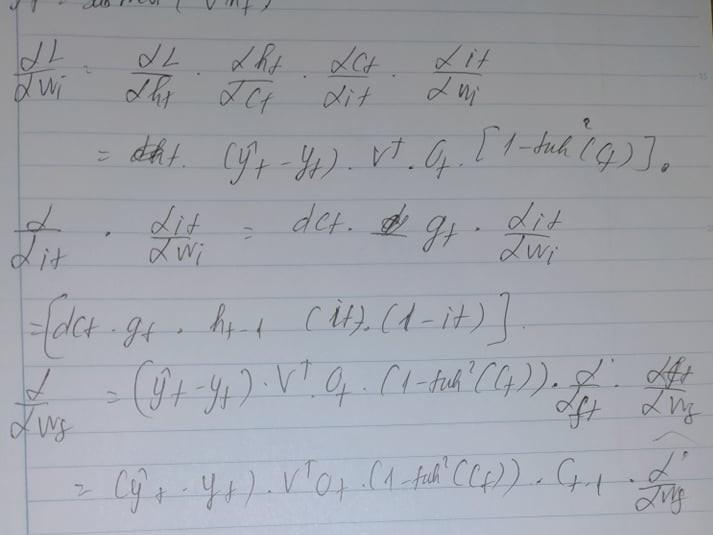 dL/dWi = dL/dht · dht/dCt · dCt/dit · dit/dWi
= (ŷt - yt) · V^T · Ot · [1 - tuh²(Ct)] .
d/dit · dit/dWi = dCt · gt · dit/dWi
= [dCt · gt · ht-1 (it) · (1 - it)] .
d/dWf = (ŷt - yt) · V^T · Ot · (1 - tuh²(Ct)) · d/dft · dft/dWf
= (ŷt · yt) · V^T Ot · (1 - tuh²(Ct)) · Ct-1 · d/dWf